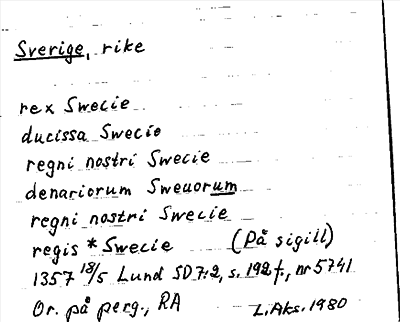 Sverige, rike
rex Swecie
ducissa Swecie
regni nostri Swecie
denariorum Sweuorum
regni nostri Swecie
regis * Swecie (På sigill)
1357 18/5 Lund SD7:2, s. 192 f, nr 5741
Or. på perg., RA L.Aks. 1980